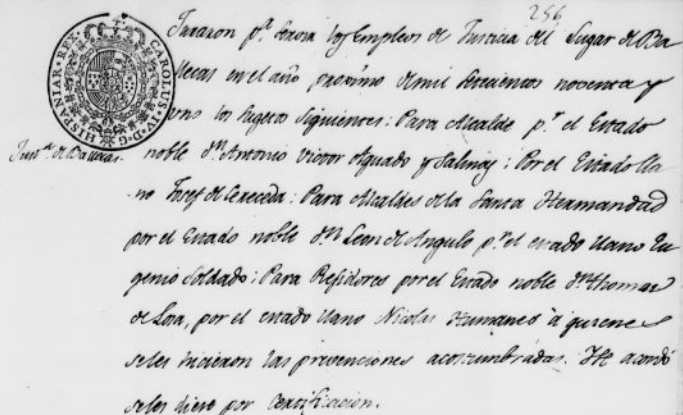 256
Juraron pª. servir los Empleos de Justicia del Lugar de Ba
llecas en el año proximo de mil setecientos noventa y
uno los sugetos siguientes: Para Alcalde pr. el Estado
Justª. de Ballecas.
noble dn. Antonio Victor Aguado y Salinas: Por el Estado lla
no Josef de Cereceda: Para Alcaldes de la Santa Hermandad
por el Estado noble dn. Leon de Angulo pr. el estado llano Eu
genio Soldado: Para Rexidores por el Estado noble dn. Thomas
de Lora, por el estado llano Nicolas Humanes à quienes
seles hicieron las prevenciones acostumbradas. Se acordò
seles diese por Certificacion.
CAROLUS IV D G HISPANIAR REX